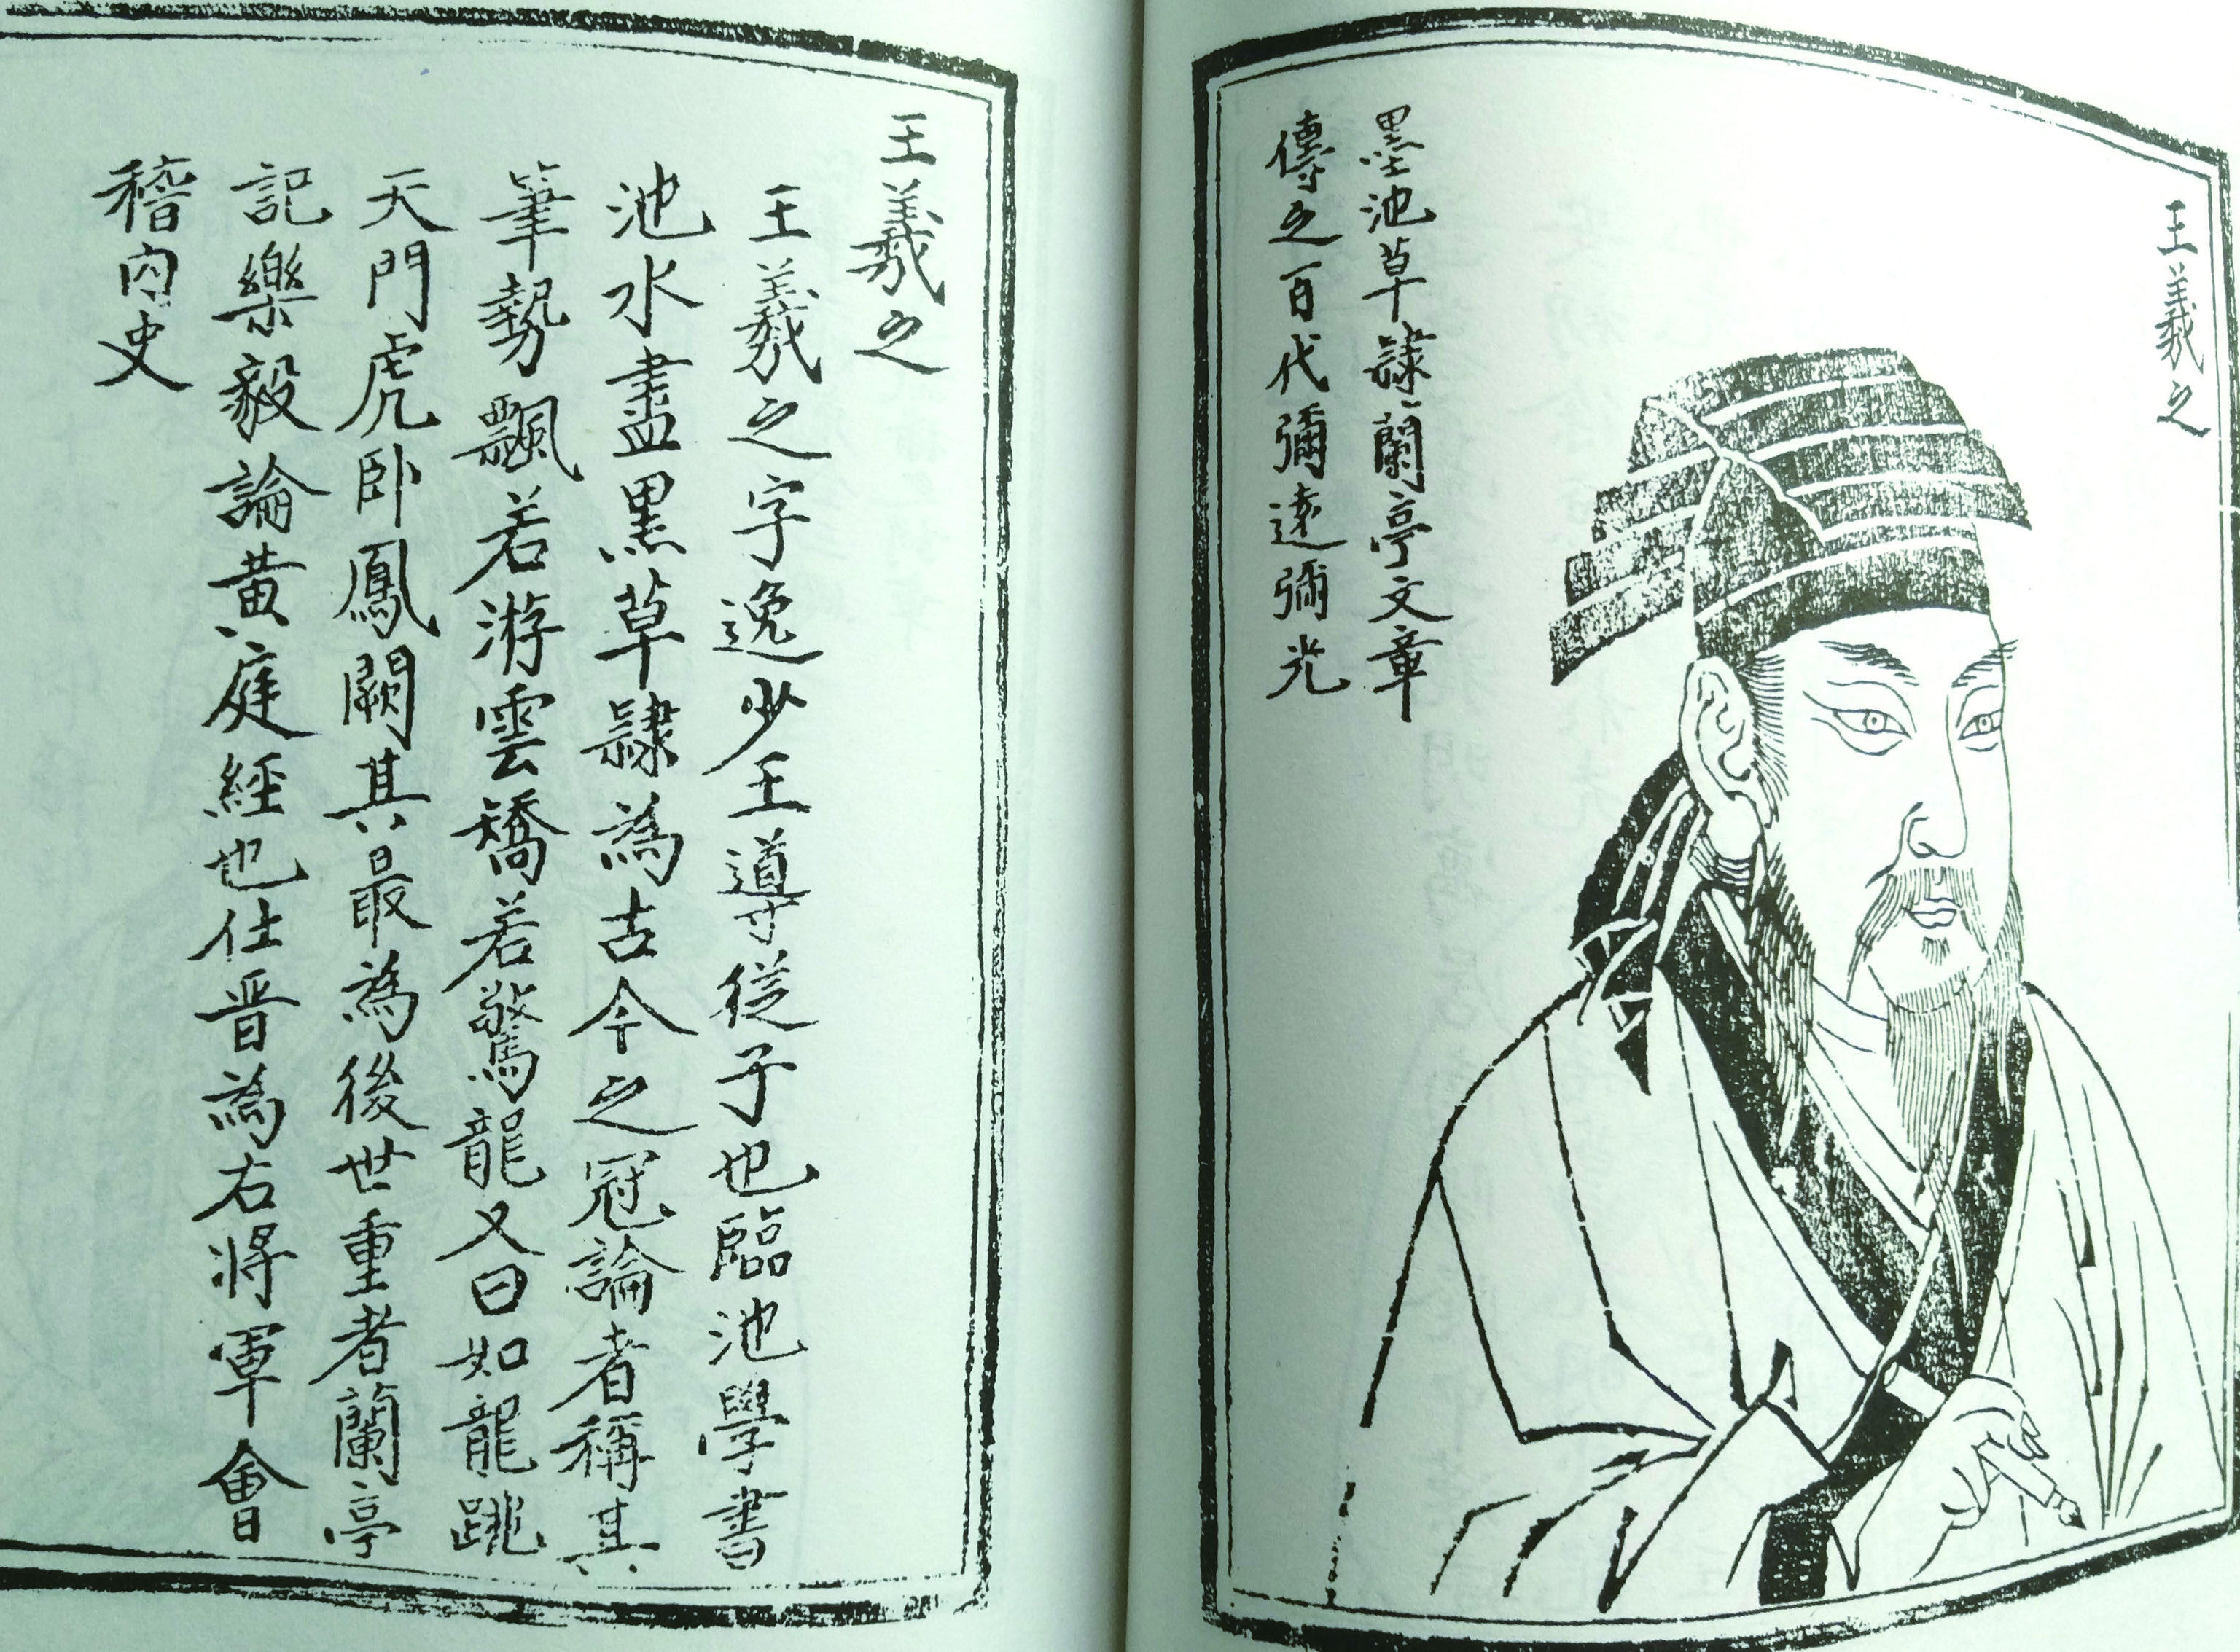 王羲之
墨池草隸蘭亭文章
傳之百代彌遠彌光
王羲之
王羲之字逸少王導從子也臨池學書
池水盡黑草隸為古今之冠論者稱其
筆勢飄若游雲矯若驚龍又曰如龍跳
天門虎卧鳳闕其最為後世重者蘭亭
記樂毅論黃庭經也仕晋為右將軍會
稽内史